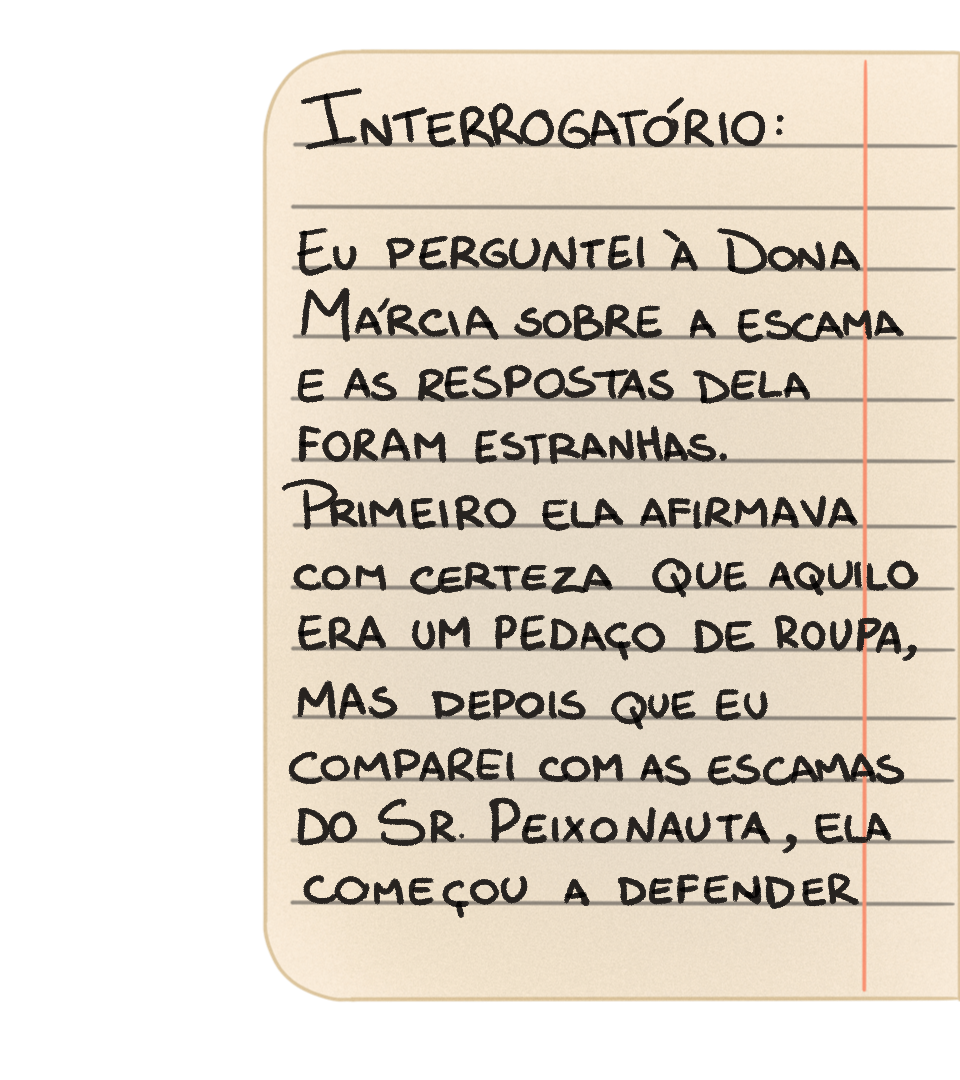 Interrogatório:
Eu perguntei à Dona
Márcia sobre a escama
e as respostas dela
foram estranhas.
Primeiro ela afirmava
com certeza que aquilo
era um pedaço de roupa,
mas depois que eu
comparei com as escamas
do Sr. Peixonauta, ela
começou a defender